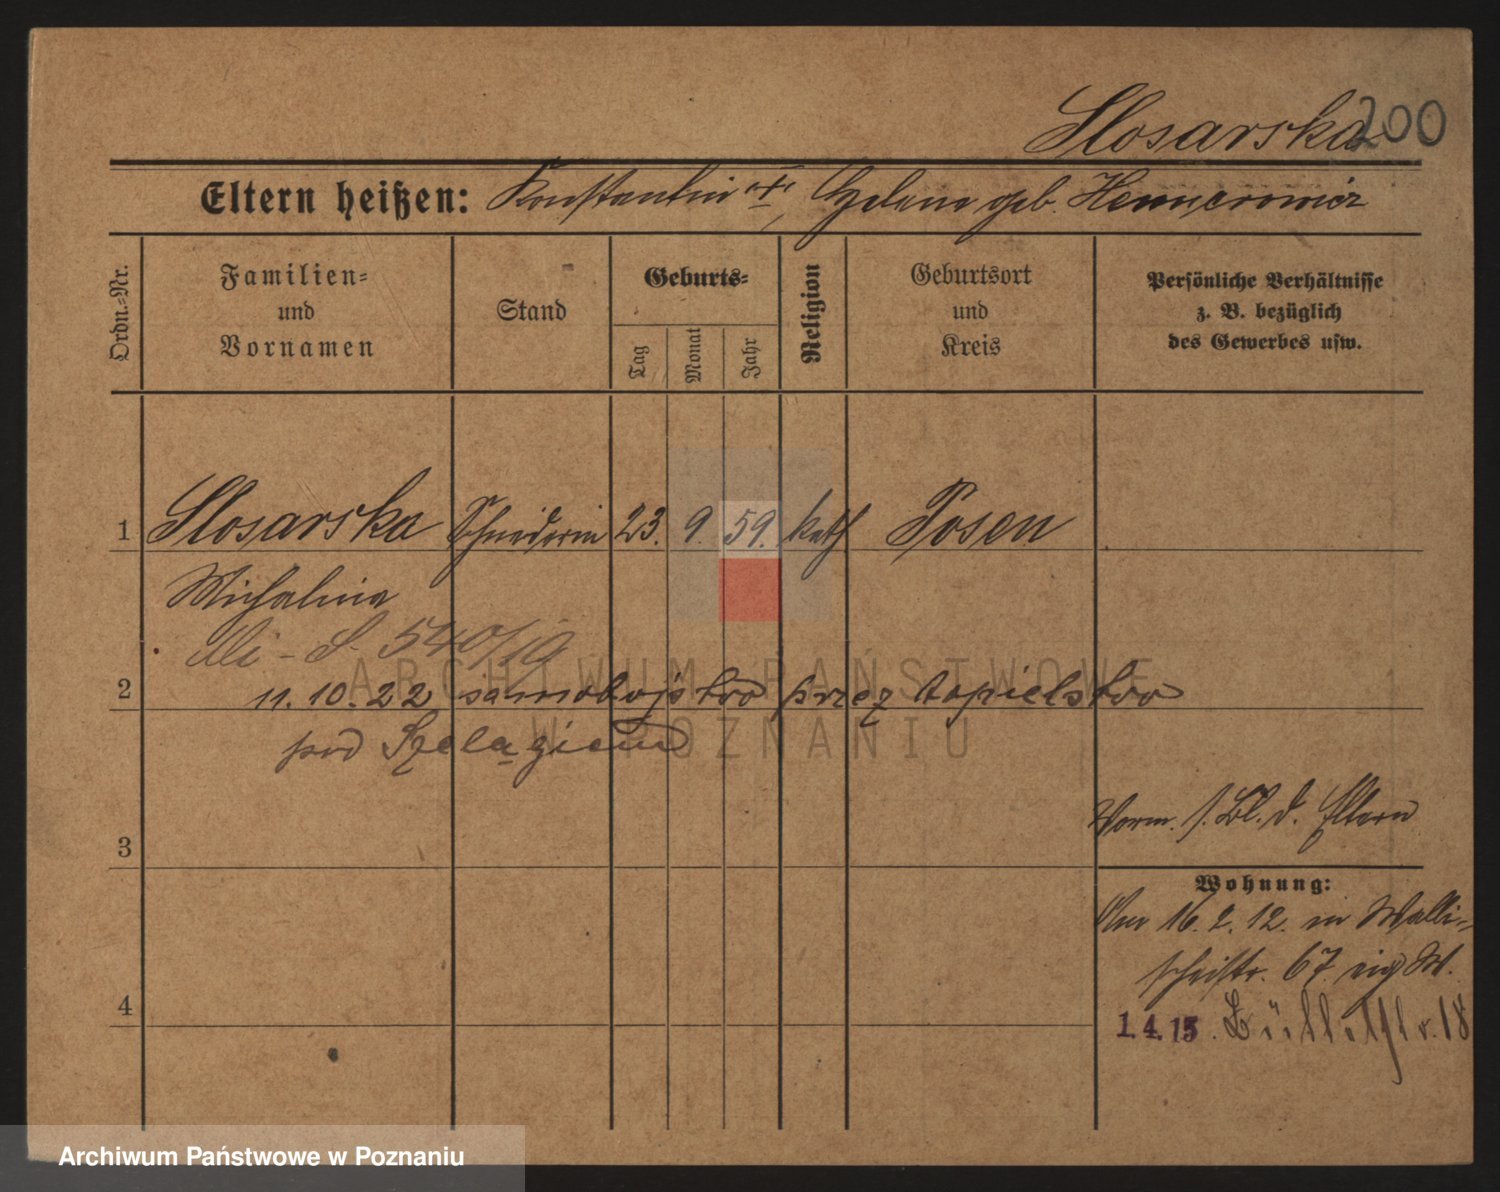 Slosarska
200
Eltern heißen: Konstantin "†", Helene geb. Henncrowicz
Ordn.=Nr.
Familien=
und
Vornamen
Stand
Geburts=
Tag
Monat
Jahr
Religion
Geburtsort
und
Kreis
Persönliche Verhältnisse
z. B. bezüglich
des Gewerbes usw.
1 Slosarska Schneiderin 23. 9. 59. kath Posen
Michalina
S. 540/19
2 11.10.22 samobójstwo przez topielstwo
pod Szelągiem
Vorm. s. Bl. d. Eltern
3
Wohnung:
16.2.12. in Walli-
scheistr. 67
4
1.4.15. 18
ARCHIWUM PAŃSTWOWE
W POZNANIU
Archiwum Państwowe w Poznaniu